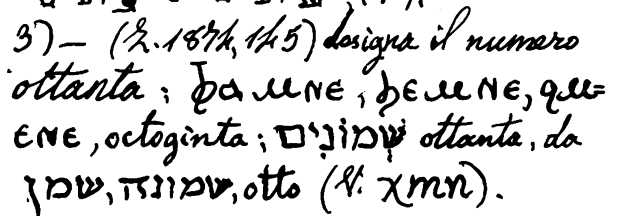 3°) — (Z. 1874, 145) designa il numero
ottanta; ϧⲁⲙⲛⲉ, ϧⲉⲙⲛⲉ, ϩⲙ=
ⲉⲛⲉ, octoginta; שְׁמוֹנִים ottanta, da
שמן, שמונה, otto (V. χmn).